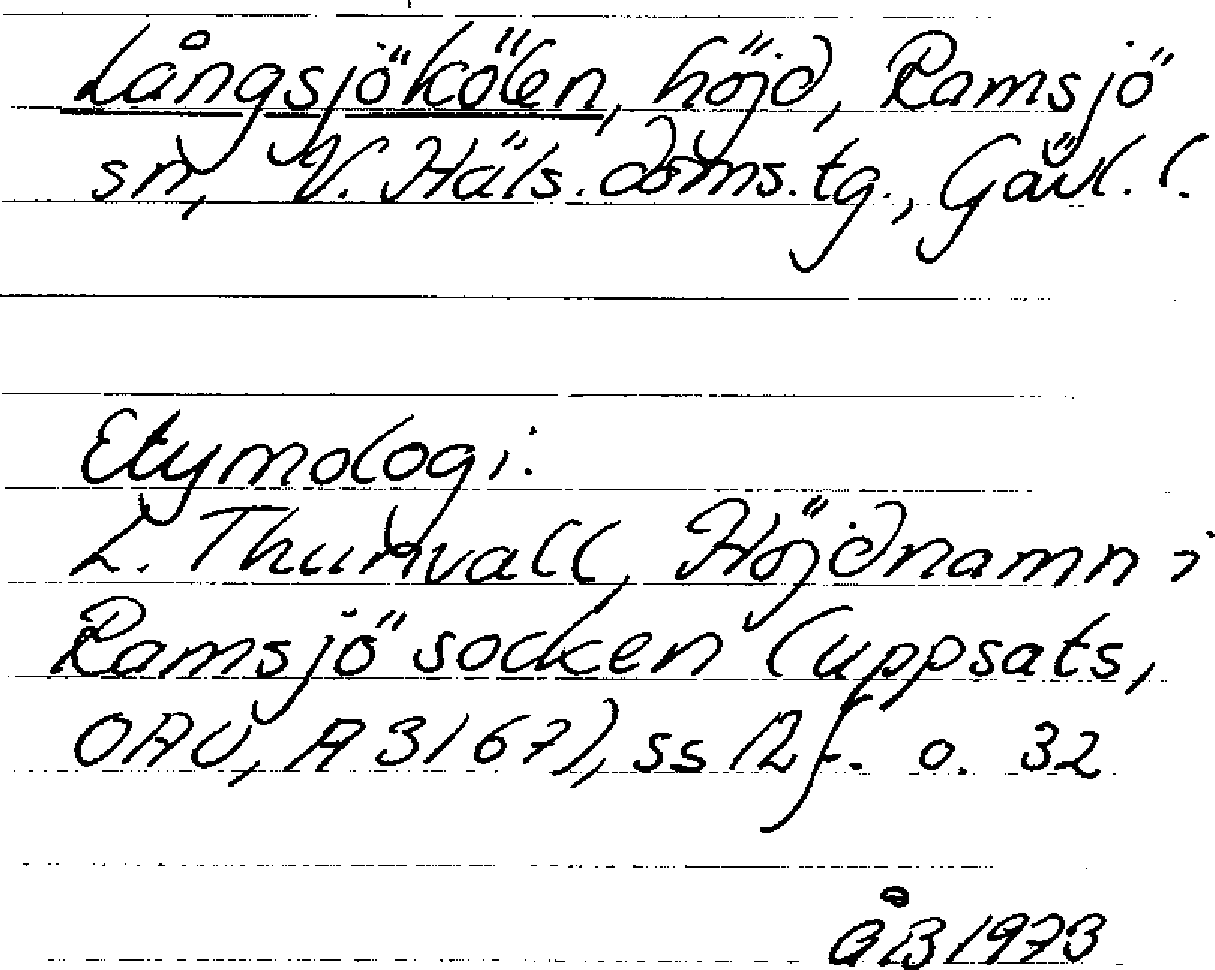 Långsjökölen, höjd, Ramsjö
sn, V. Häls. doms. tg., Gävl. l.
Etymologi:
L. Thunvall, Höjdnamn i
Ramsjö socken (uppsats,
OAU, A 3167), ss 12 f. o. 32
ÅB 1973